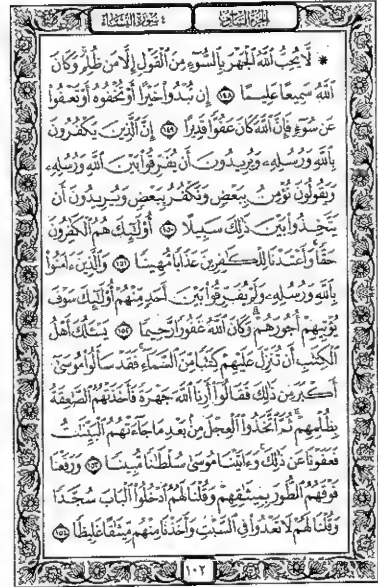 الجزء السادس ٤ سورة النساء
* لَّا يُحِبُّ ٱللَّهُ ٱلْجَهْرَ بِٱلسُّوٓءِ مِنَ ٱلْقَوْلِ إِلَّا مَن ظُلِمَ وَكَانَ
ٱللَّهُ سَمِيعًا عَلِيمًا ١٤٨ إِن تُبْدُوا۟ خَيْرًا أَوْ تُخْفُوهُ أَوْ تَعْفُوا۟
عَن سُوٓءٍ فَإِنَّ ٱللَّهَ كَانَ عَفُوًّا قَدِيرًا ١٤٩ إِنَّ ٱلَّذِينَ يَكْفُرُونَ
بِٱللَّهِ وَرُسُلِهِۦ وَيُرِيدُونَ أَن يُفَرِّقُوا۟ بَيْنَ ٱللَّهِ وَرُسُلِهِۦ
وَيَقُولُونَ نُؤْمِنُ بِبَعْضٍ وَنَكْفُرُ بِبَعْضٍ وَيُرِيدُونَ أَن
يَتَّخِذُوا۟ بَيْنَ ذَٰلِكَ سَبِيلًا ١٥٠ أُو۟لَٰٓئِكَ هُمُ ٱلْكَٰفِرُونَ
حَقًّا وَأَعْتَدْنَا لِلْكَٰفِرِينَ عَذَابًا مُّهِينًا ١٥١ وَٱلَّذِينَ ءَامَنُوا۟
بِٱللَّهِ وَرُسُلِهِۦ وَلَمْ يُفَرِّقُوا۟ بَيْنَ أَحَدٍ مِّنْهُمْ أُو۟لَٰٓئِكَ سَوْفَ
يُؤْتِيهِمْ أُجُورَهُمْ وَكَانَ ٱللَّهُ غَفُورًا رَّحِيمًا ١٥٢ يَسْـَٔلُكَ أَهْلُ
ٱلْكِتَٰبِ أَن تُنَزِّلَ عَلَيْهِمْ كِتَٰبًا مِّنَ ٱلسَّمَآءِ فَقَدْ سَأَلُوا۟ مُوسَىٰٓ
أَكْبَرَ مِن ذَٰلِكَ فَقَالُوٓا۟ أَرِنَا ٱللَّهَ جَهْرَةً فَأَخَذَتْهُمُ ٱلصَّٰعِقَةُ
بِظُلْمِهِمْ ثُمَّ ٱتَّخَذُوا۟ ٱلْعِجْلَ مِنۢ بَعْدِ مَا جَآءَتْهُمُ ٱلْبَيِّنَٰتُ
فَعَفَوْنَا عَن ذَٰلِكَ وَءَاتَيْنَا مُوسَىٰ سُلْطَٰنًا مُّبِينًا ١٥٣ وَرَفَعْنَا
فَوْقَهُمُ ٱلطُّورَ بِمِيثَٰقِهِمْ وَقُلْنَا لَهُمُ ٱدْخُلُوا۟ ٱلْبَابَ سُجَّدًا
وَقُلْنَا لَهُمْ لَا تَعْدُوا۟ فِى ٱلسَّبْتِ وَأَخَذْنَا مِنْهُم مِّيثَٰقًا غَلِيظًا ١٥٤
١٠٢